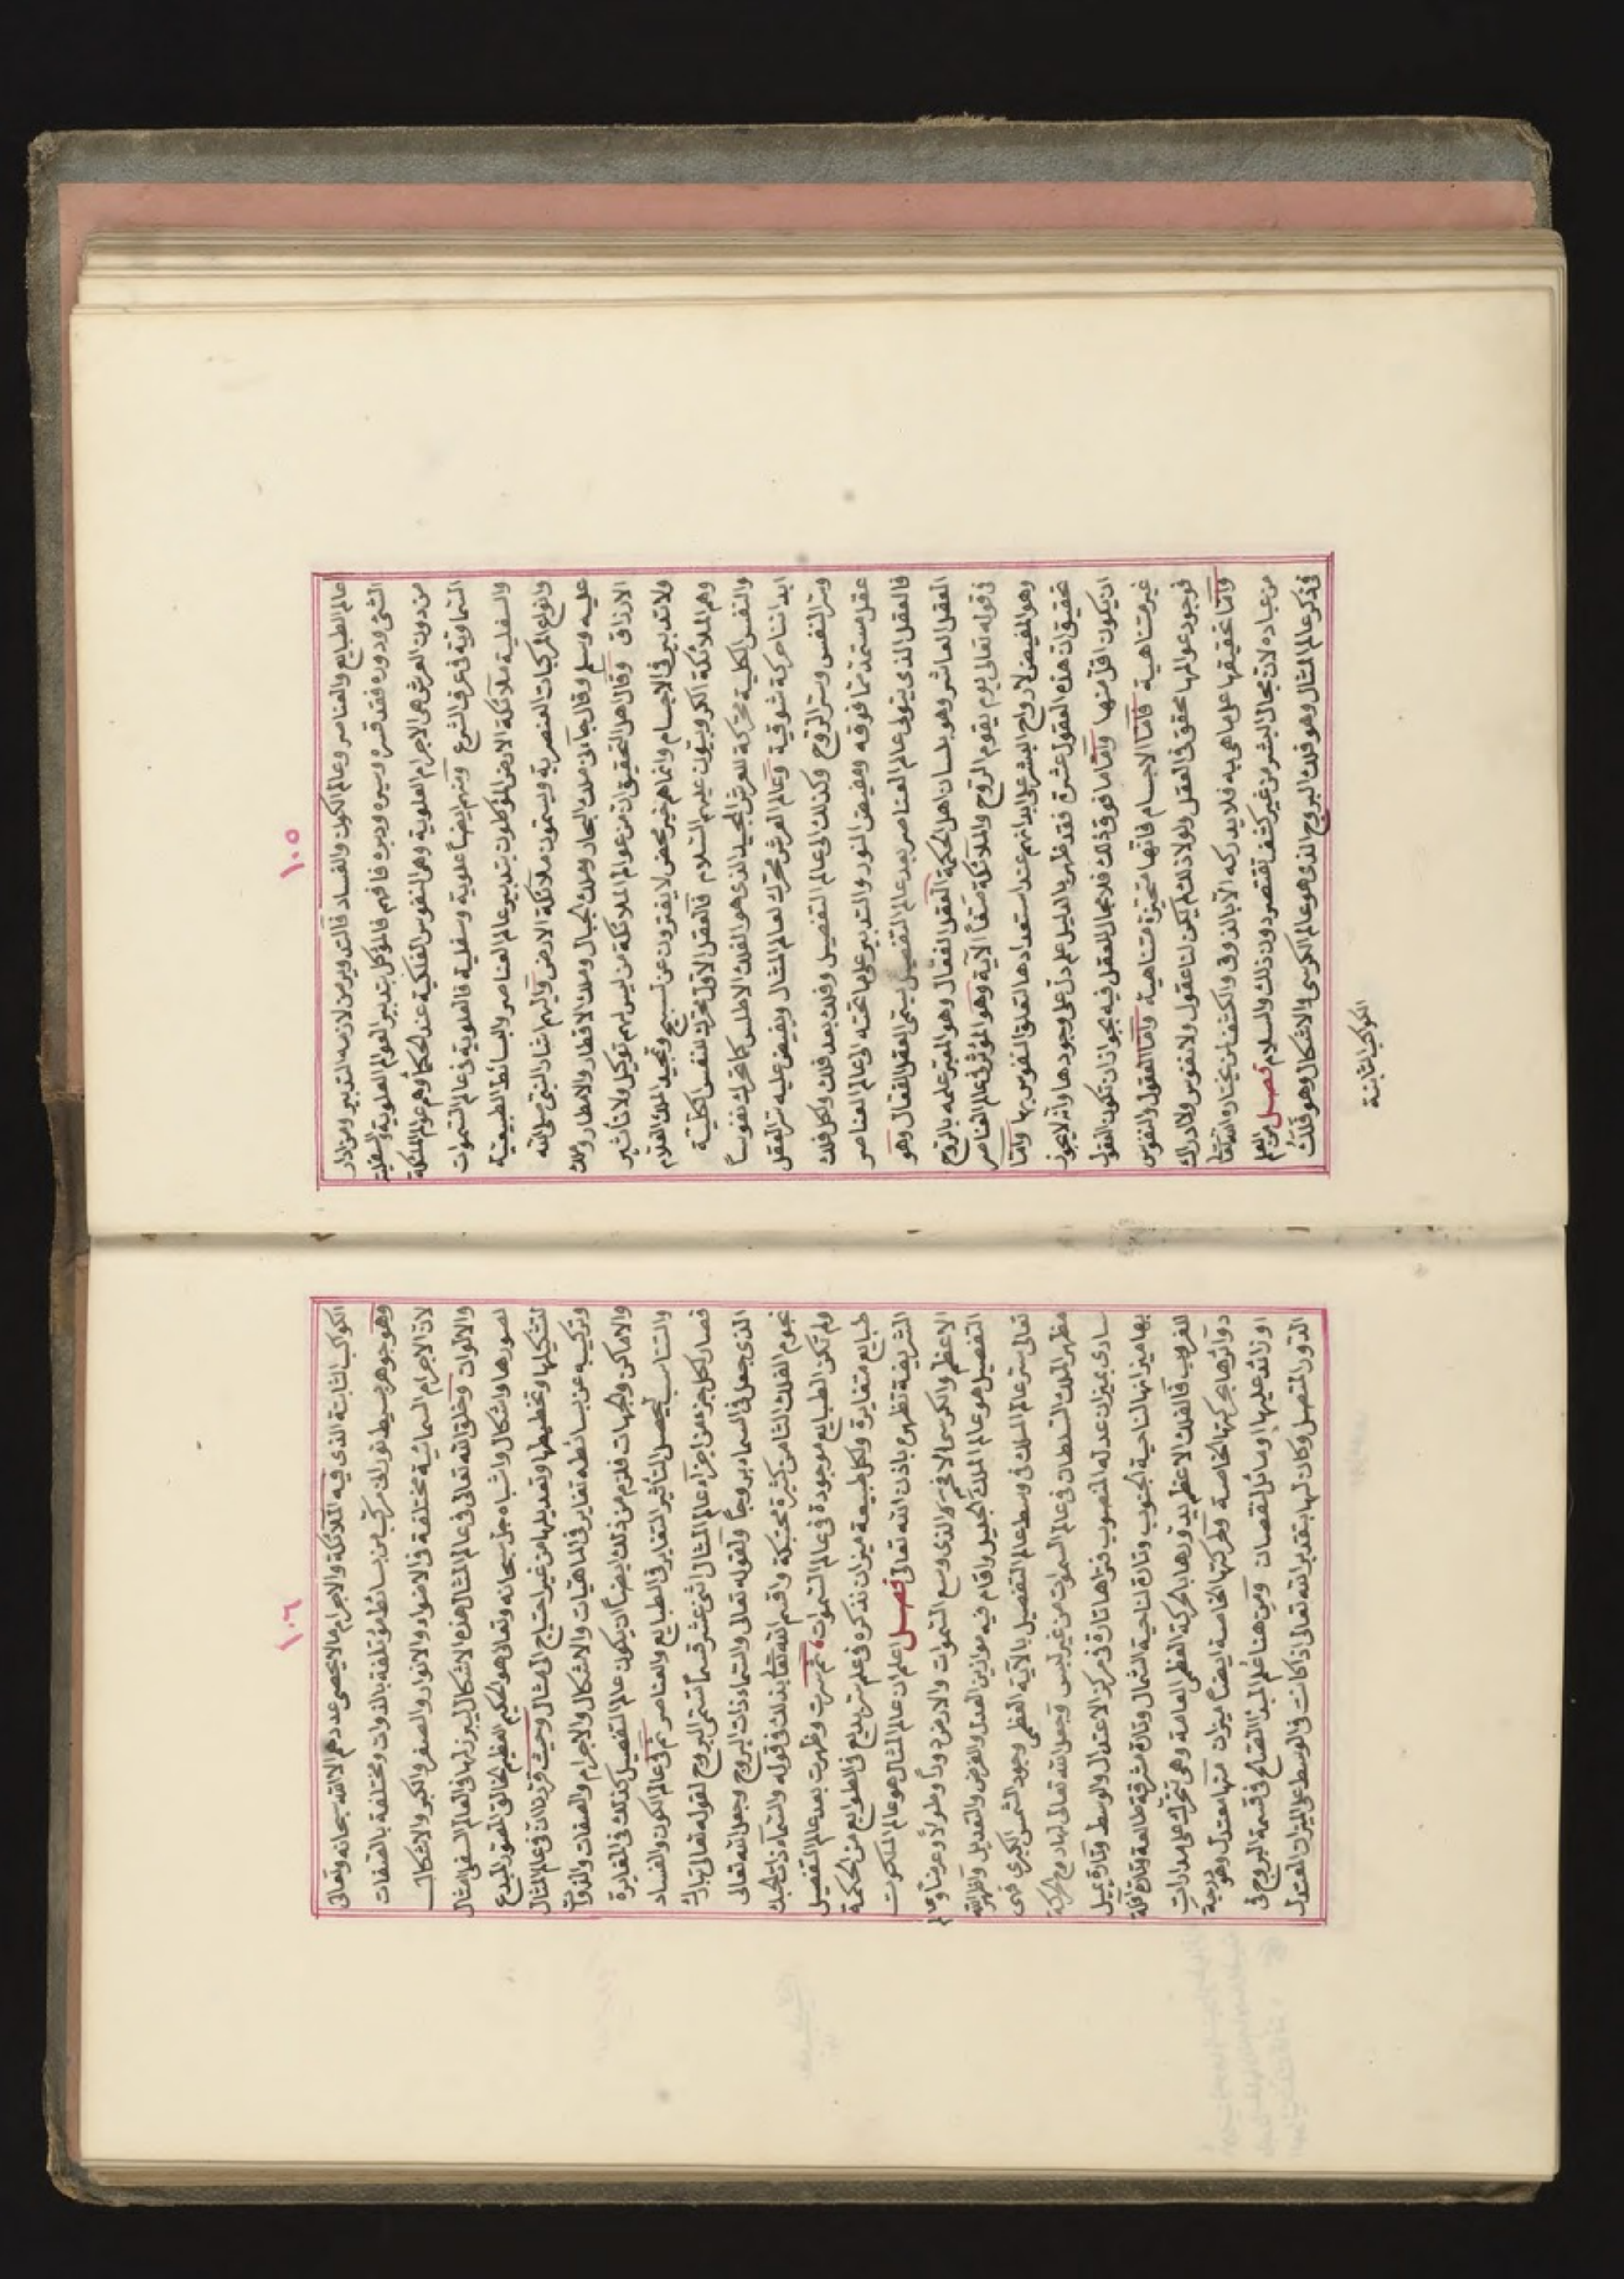 ١٠٥
عالم الطبايع والعناصر وعالم الكون والفساد فالتدوير من لازمه التدبير ومن دار
الشئ ودوره فقد قسره وسيره ودبره فافهم فالموكل بتدبير العوالم العلوية والسفلية
من دون العرش هى الاجرام العلوية وهى النفوس الفلكية عند الحكماء وهم عوالم الملئكة
السماوية فى عرف الشرع ومنهم ايضاً علوية وسفلية فالعلوية فى عالم السموات
والسفلية ملائكة الارض الموكلون بتدبير عالم العناصر والبسائط الطبيعية
وانواع المركبات العنصرية ويسمون ملائكة الارض واليهم اشار النبى صلى الله
عليه وسلم وقال جآنى ملك البحار وملك الجبال وملك الاقطار والامطار وملك
الارزاق وقال اهل التحقيق ان من عوالم الملائكة من ليس لهم توكيل ولا تأثير
ولا تدبير فى الاجسام وانما هم خير محض لا يفترون عن تسبيح وتمجيد الملك العلام
وهم الملائكة الكروبيون عليهم السلام فالعقل الاول محرك للنفس الكلية
والنفس الكلية محركة للعرش المجيد الذى هو الفلك الاطلس كما تحرك نفوسنا
ابداننا حركة شوقية وعالم العرش محرك لعالم المثال ويفيض عليه سر العقل
وسر النفس وسر الروح وكذلك الى عالم التفصيل وفلك بعد فلك ولكل فلك
عقل مستمد مما فوقه ومفيض النور والتدبير على ما تحته الى عالم العناصر
فالعقل الذى يتولى عالم العناصر بعد عالم التفصيل يسمى العقل الفعال وهو
العقل العاشر وهو بلسان اهل الحكمة العقل الفعال وهو المعبر عنه بالروح
فى قوله تعالى يوم يقوم الروح والملائكة صفاً الآية وهو المؤثر فى عالم العناصر
وهو المفيض لارواح البشر على ابدانهم عند استعدادها لتعلق النفوس بها واما
تحقيق ان هذه العقول عشرة فقد ظهر بالدليل علم دل على وجودها وانه لا يجوز
ان يكون اقل منها واما ما فوق ذلك فلا مجال للعقل فيه بجواز ان تكون العقول
غير متناهية فاما الاجسام فانها متحيزة متناهية واما العقول والنفوس
فوجود عوالمها محقق فى العقل ولولا ذلك لم يكن لنا عقول ولا نفوس ولا ادراك
واما تحقيقها على ما هى به فلا يدركه الا بالذوق والكشف لمن يختاره الله تعالى
من عباده لان مجال البشر من غير كشف تقتصر دون ذلك والسلام فصل
فى ذكر عالم المثال وهو فلك البروج الذى هو عالم الكرسى والاشكال وهو فلك
الكواكب الثابتة
١٠٦
الكوكب الثابتة الذى فيه الملائكة والاجرام ما لا يحصى عددهم الا الله سبحانه وتعالى
وهو جوهر بسيط نورانى مركب من بسائط مؤتلفة بالذوات ومختلفة بالصفات
لان الاجرام السمائية مختلفة فى الاضواء والانوار والصغر والكبر والاشكال
والالوان وخلق الله تعالى فى عالم المثال هذه الاشكال ليبرز لها فى العالم السفلى امثال
لصورها واشكال واشباه جل سبحانه وتعالى هو الحكيم العظيم الخالق المصور المبدع
لتشكيلها وتخطيطها وتعديلها من غير احتياج الى مثال وحيث قررنا ان فى عالم المثال
وتركيبه عن بسائطه تغاير فى الماهيات والاشكال والاجرام والصفات والذوات
والاماكن والجهات فلزم من ذلك ايضاً ان يكون عالم التفصيل كذلك فى المغايرة
والتناسب ليحصل التأثير المتغاير فى الطبايع والعناصر ثم فى عالم الكون والفساد
فصار لكل جزء من اجزاء عالم المثال اثنى عشر قسماً تسمى البروج لقوله تعالى تبارك
الذى جعل فى السماء بروجاً ولقوله تعالى والسماء ذات البروج وجعل الله تعالى
نجوم الفلك الثامن كثيرة محتبكة واقسم الله تعالى بذلك فى قوله والسماء ذات الحبك
ولم تكن الطبايع موجودة فى عالم السموات ثم سرت وظهرت بعد عالم التفصيل
طبايع متغايرة ولكل طبيعة ميزان نذكره فى علم سر بديع فى الطوايع من الحكمة
الشريفة تظهره باذن الله تعالى فصل اعلم ان عالم المثال هو عالم الملكوت
الاعظم والكرسى الافخر الذى وسع السموات والارض دوراً وطولاً وعرضاً وعالم
التفصيل هو عالم الملك الجليل واقام فيه موازين العدل والفرض والتعديل واظهر الله
تعالى سر عالم الملك فى وسط عالم التفصيل بالآية العظمى وجود الشمس الكبرى فهى
مظهر الملك السلطان فى عالم السموات من غير لبس وجعل الله تعالى لها دوح الحركة
سارى بميزان عدله المنصوب فتراها تارة فى مركز الاعتدال والوسط وتارة يميل
بها ميزانها لناحية الجنوب وتارة لناحية الشمال وتارة مشرقة طالعة وتارة افلة
للغروب فالفلك الاعظم يدورها بالحركة العظمى العامة وهى تتحرك على مدارات
دوائرها بحركتها الخاصة ولحركتها الخاصة ايضاً ميزان منها معتدل وهو
او زائد عليها او مائل لنقصان ومن هنا علم المبدأ المفتاح فى قسمة البروج فى
الدور المتصل وكان لها بتقدير الله تعالى اذا كانت فى الوسط على الميزان المعتدل